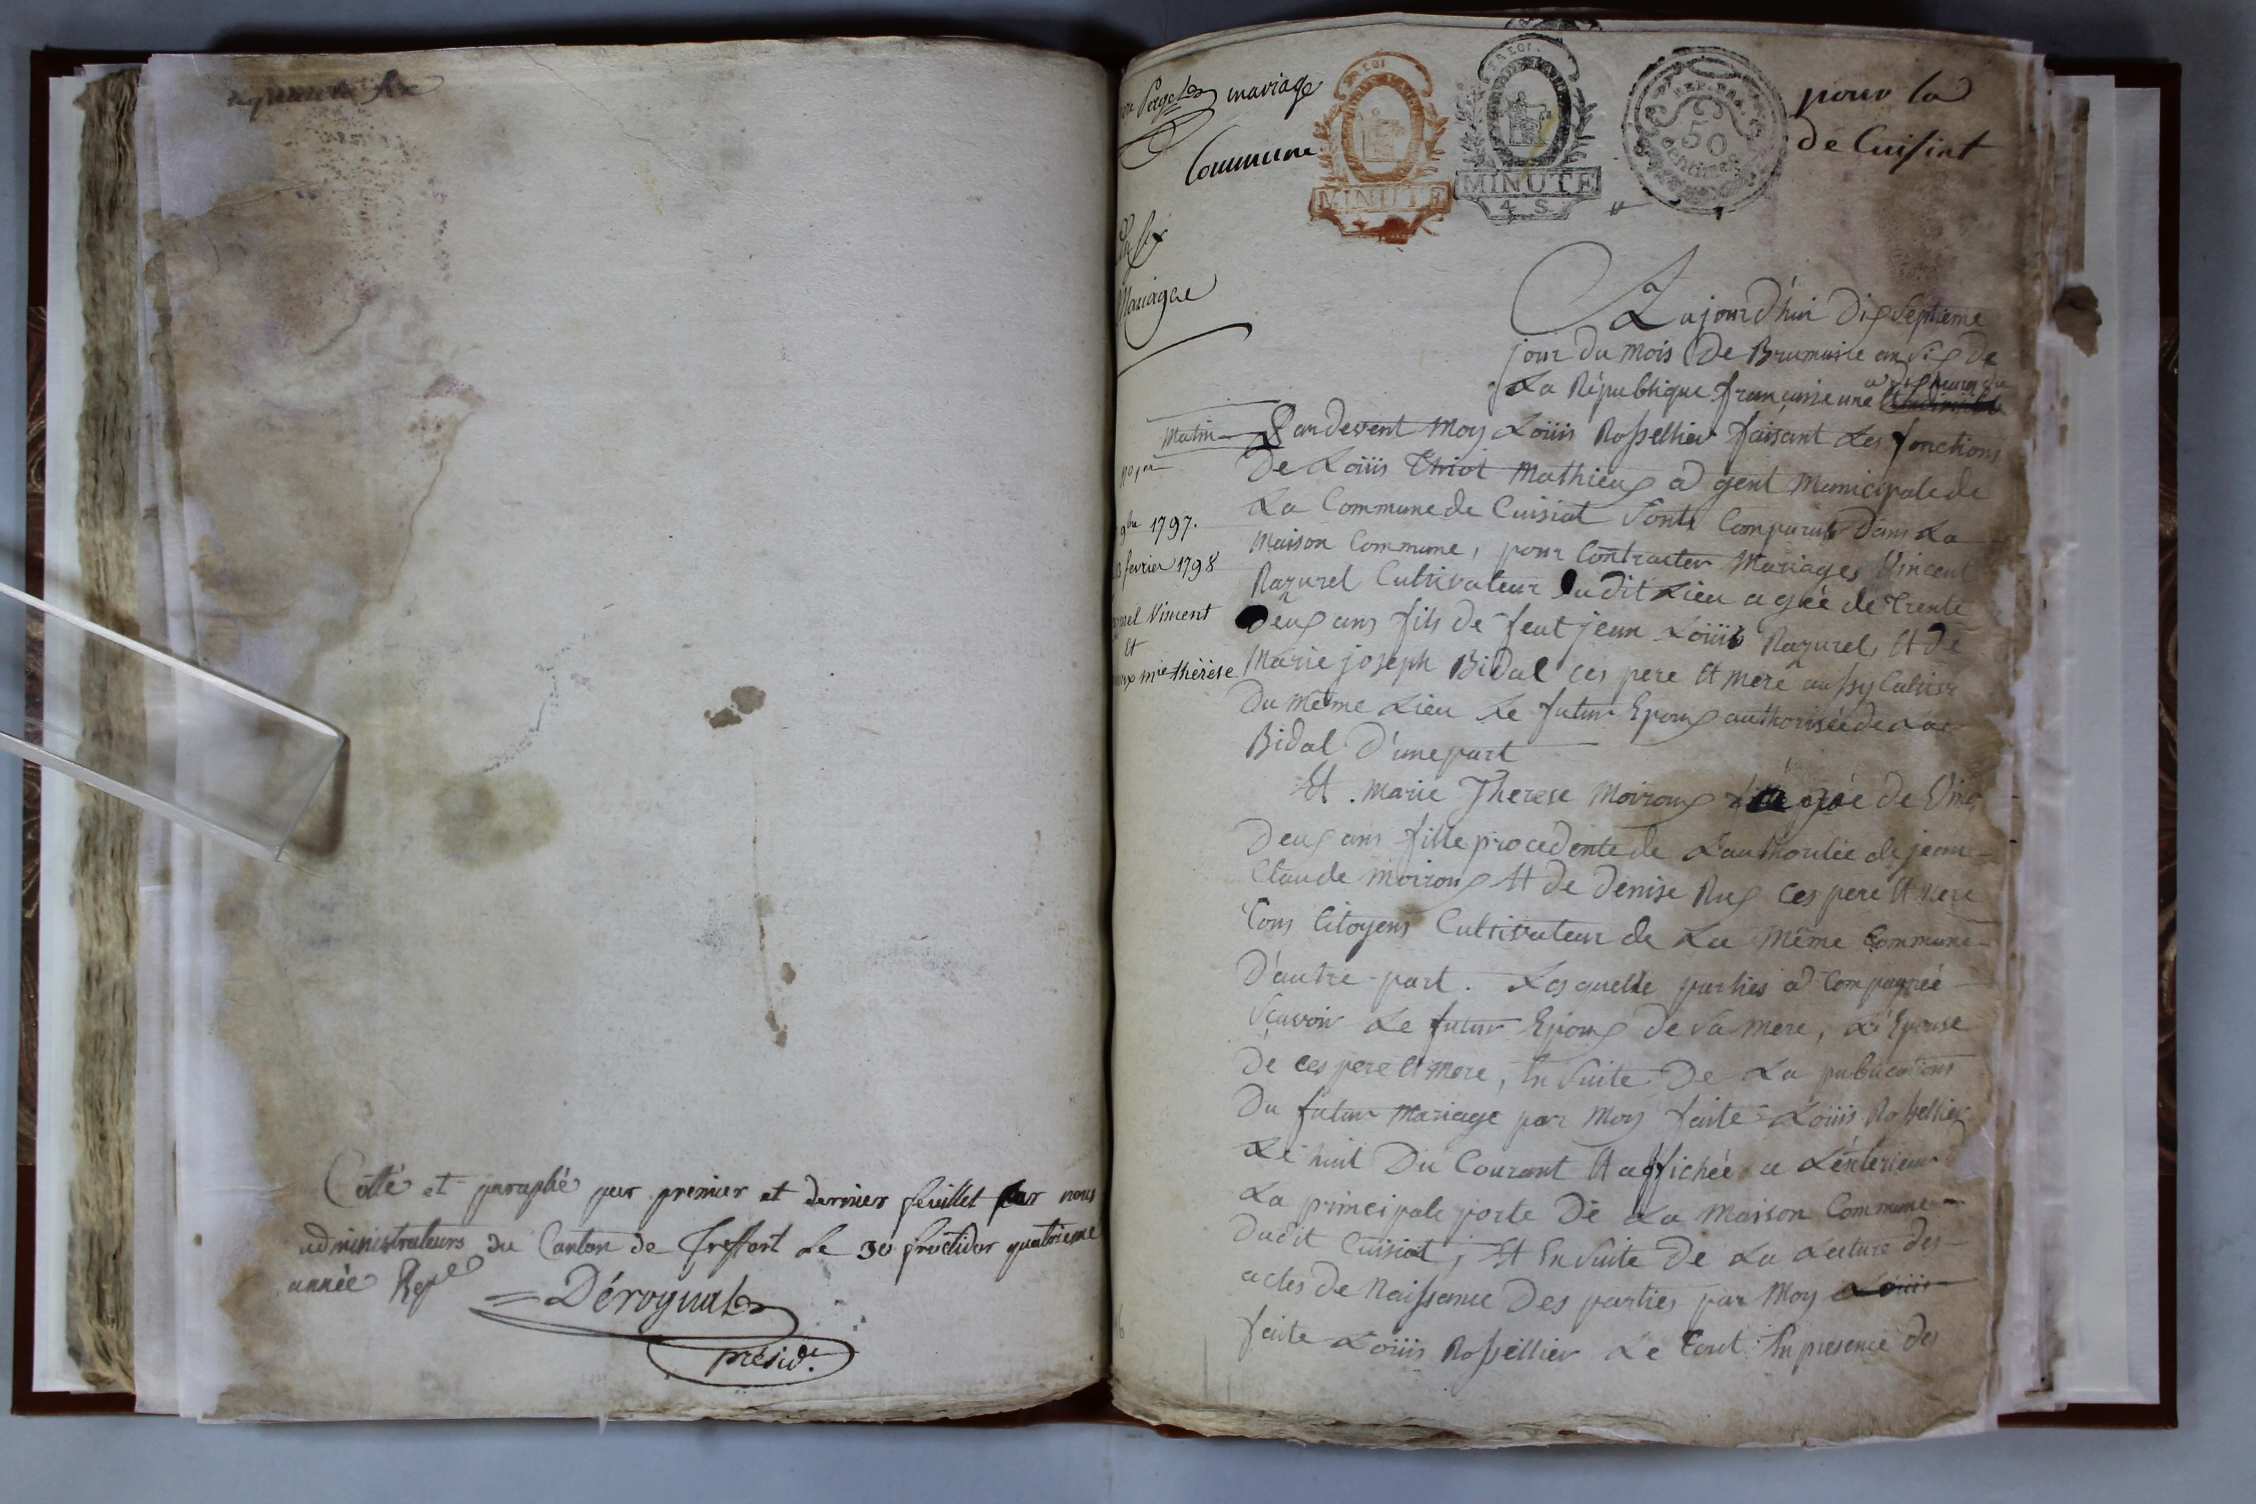 Cotté et paraphé par premier et dernier feuillet par nous
administrateurs du Canton de Treffort Le 30 fructidor quatrieme
année Repe
Dérognat
présidt.
mariage
pour la
Commune
de Cuisiat
MINUTE
MINUTE
4 S
REP. FRA.
50
centimes
an six
Mariages
Aujourd'hui dix Septieme
jour du mois De Brumaire an Six de
La République françaisienne a dix heures du
matin Pardevent Moy Loüis Rossellier faisant Les fonctions
De Loüis Thiot Mathieux agent Municipale de
La Commune de Cuisiat Sonts Comparus Dans La
Maison Commune, pour Contracter Mariages Vincent
Razurel Cultivateur Dudit Lieu agée de Trente
Deux ans fils de feut jean Loüis Razurel Et de
Marie joseph Bidal ces pere Et mere aussy Cultivr
Du même Lieu Le futur Epoux authorisée de La
Bidal D'une part
9bre 1797.
fevrier 1798
Vincent
et
mie thérèse
Et Marie Therese Moiroux agée de Vingt
Deux ans fille procedente de L'authoritée de jean
Claude moiroux Et de Denise Rux ces pere Et Mere
Tous Citoyens Cultivateur de La Même Commune
D'autre part. Les quelle parties a Compagnée
Sçavoir Le futur Epoux de Sa Mere, L'Epouse
De ces pere Et Mere, En Suite De La publications
Du futur Mariage par Moy faite Loüis Rossellier
Le huit Du Courant Et affichée a L'exterieur
La principale porte De La Maison Commune
Dudit Cuisiat, Et En Suite De La Lecture des
actes de Naissance Des parties par Moy Loüis
faite Loüis Rossellier Le tout En presence des